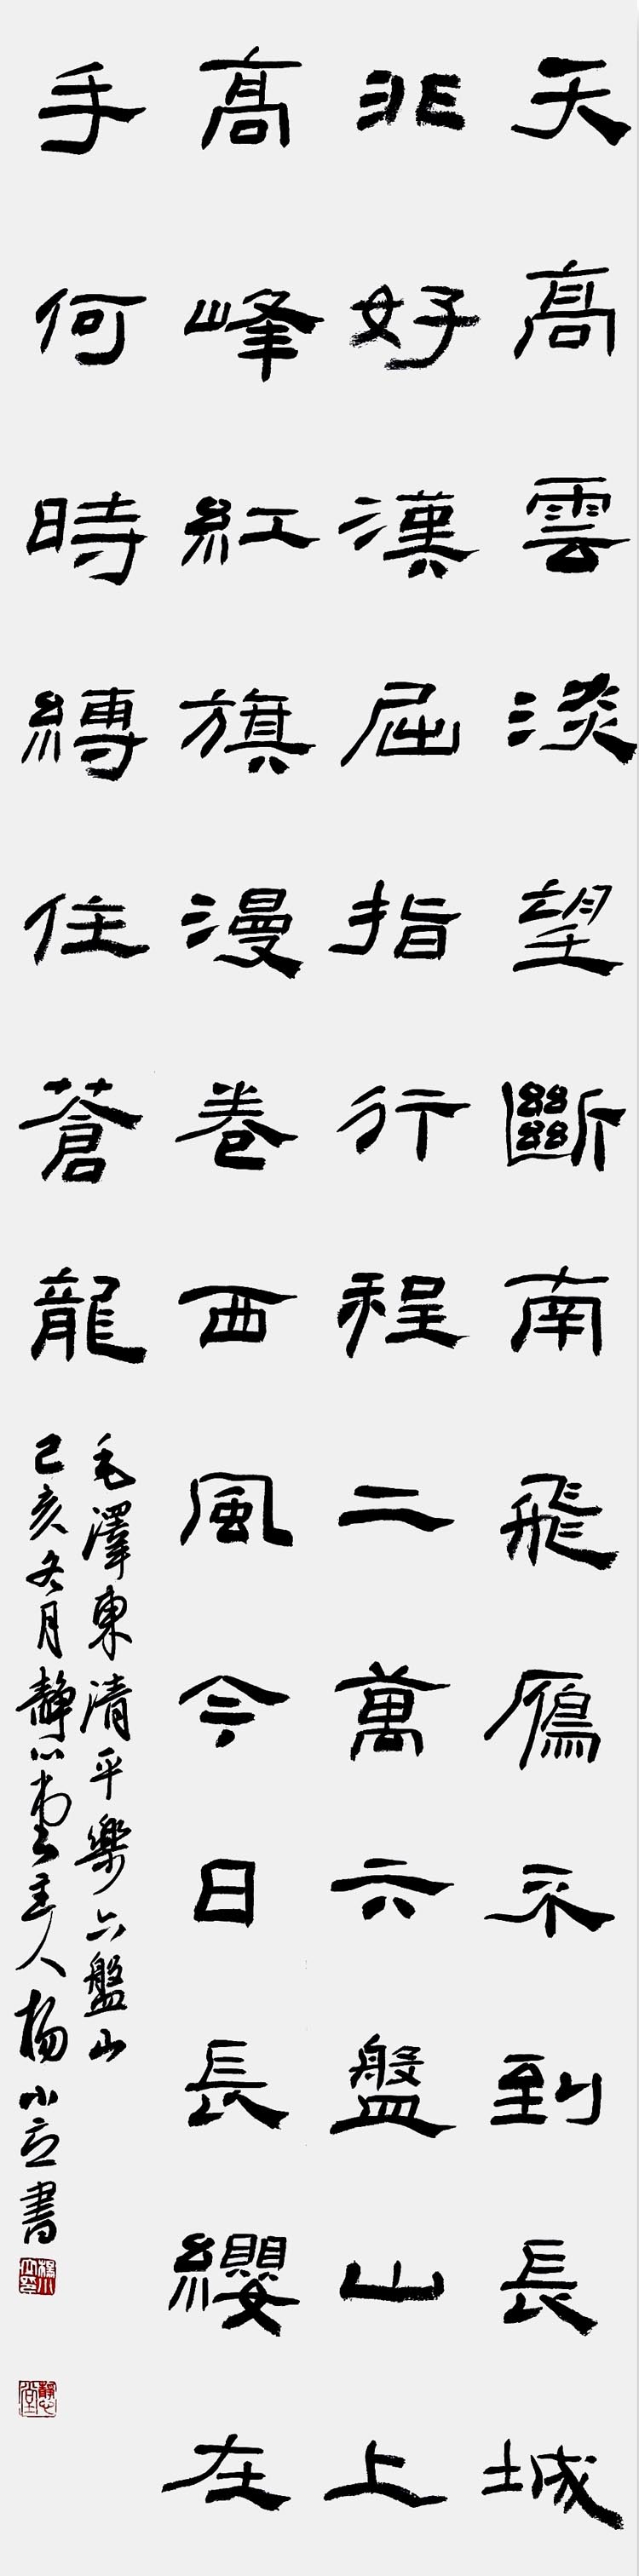 天高雲淡望斷南飛鴈不到長城
非好漢屈指行程二萬六盤山上
高峰紅旗漫卷西風今日長纓在
手何時縛住蒼龍
毛澤東清平樂六盤山
己亥冬月靜心堂主人楊小立書
楊小立印
靜心堂